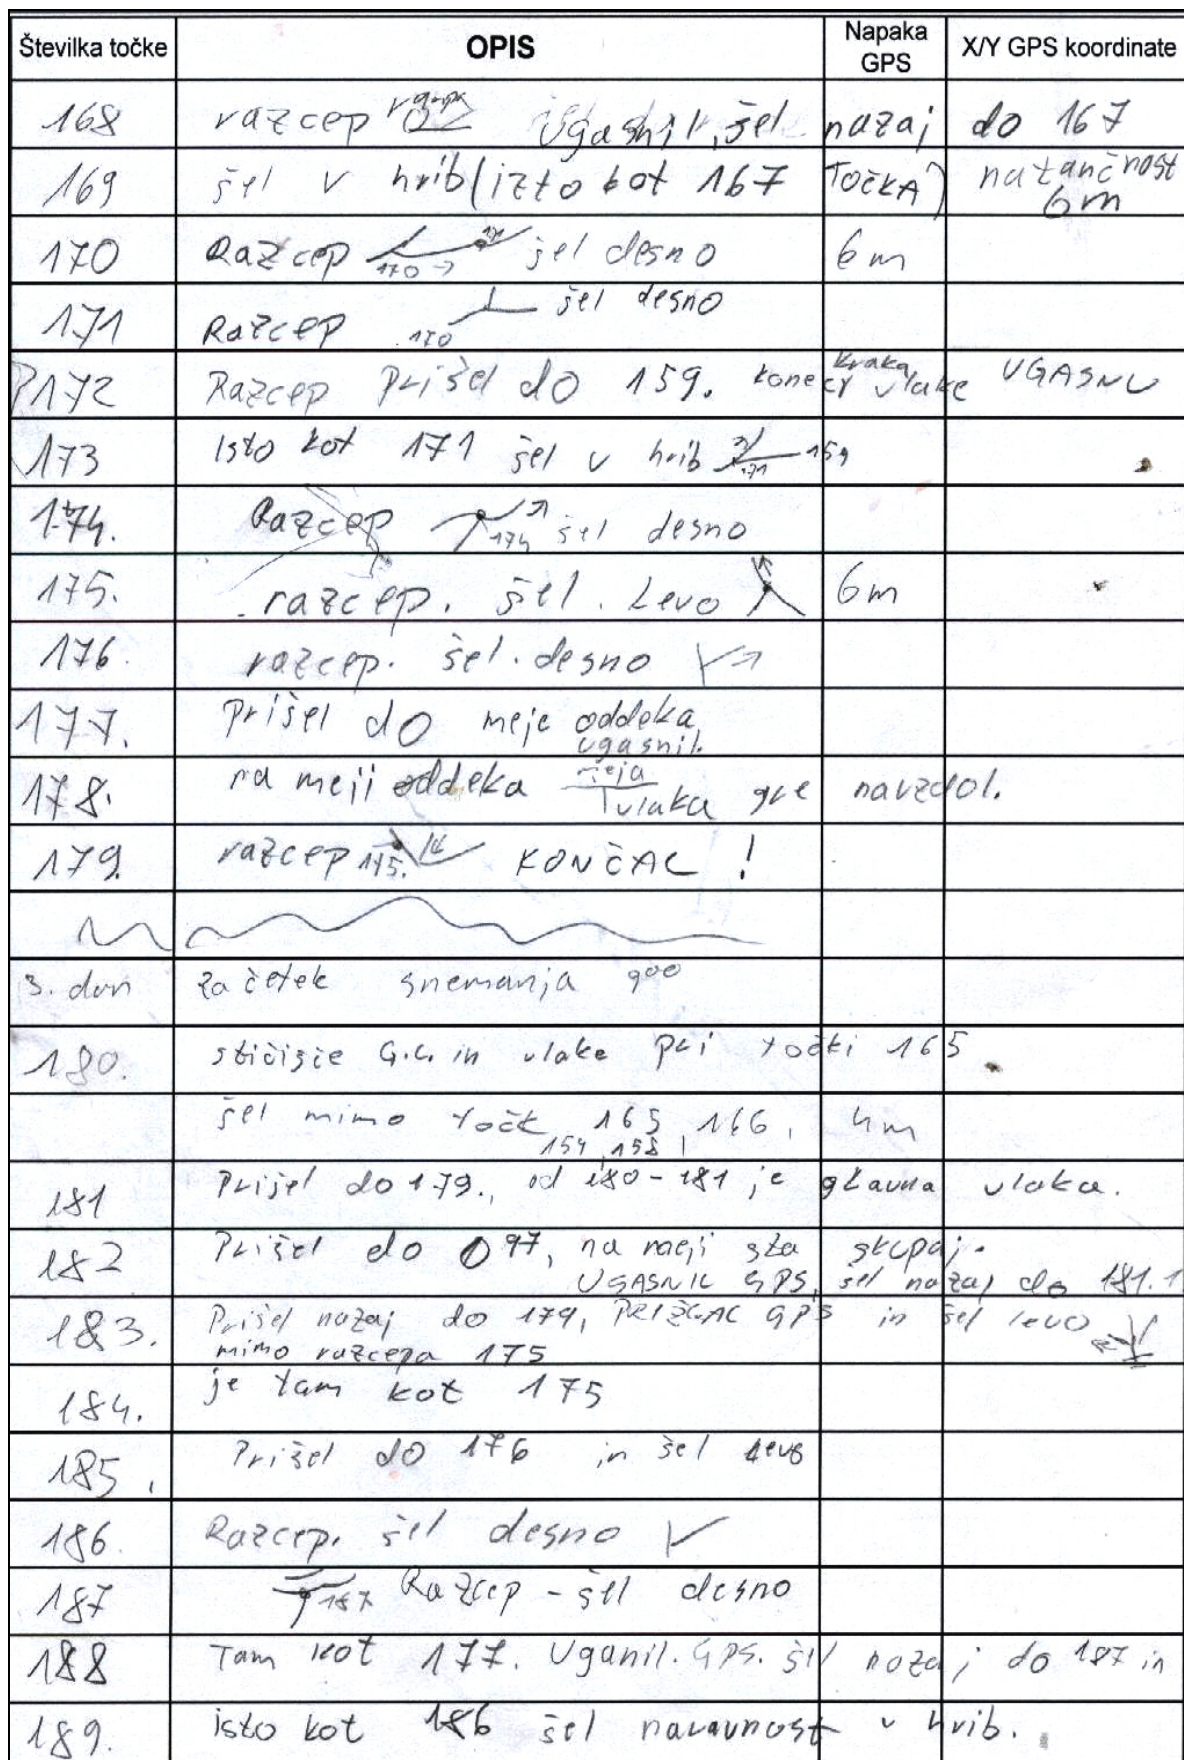 Številka točke OPIS Napaka GPS X/Y GPS koordinate
168 razcep rampa ugasnil, šel nazaj do 167
169 šel v hrib (izto kot 167 TOČKA) natančnost 6m
170 Razcep 170 171 šel desno 6m
171 Razcep 170 šel desno
172 Razcep prišel do 159. konec kraka vlake UGASNIL
173 Isto kot 171 šel v hrib 171 159
174. Razcep 174 šel desno
175. razcep. šel. Levo 6m
176. razcep. šel. desno
177. prišel do meje oddeka
ugasnil.
178. na meji oddeka meja vlaka gre navzdol.
179. razcep 175. KONČAL !
3. dan začetek snemanja 9⁰⁰
180. stičišče G.C. in vlake pri točki 165
šel mimo točk 165, 166, 4m
159, 158
181 Prišel do 179., od 180-181 je glavna vlaka.
182 Prišel do 097, na meji sta skupaj.
UGASNIL GPS, šel nazaj do 181.
183. Prišel nazaj do 179, PRIŽGAL GPS in šel levo
mimo razcepa 175
184. je tam kot 175
185. Prišel do 176 in šel levo
186. Razcep. šel desno
187 187 Razcep - šel desno
188 Tam kot 177. Uganil. GPS. šel nazaj do 187 in
189. isto kot 186 šel naravnost v hrib.